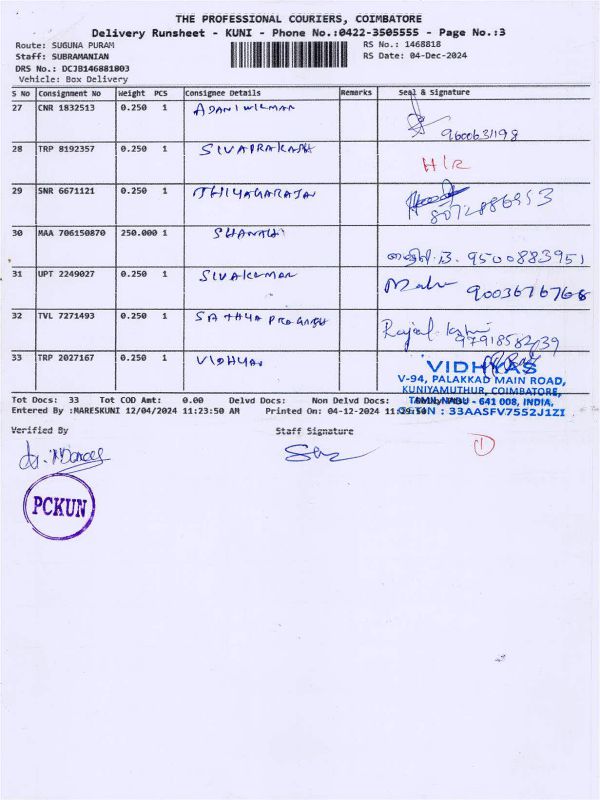 THE PROFESSIONAL COURIERS, COIMBATORE
Delivery Runsheet - KUNI - Phone No.:0422-3505555 - Page No.:3
Route: SUGUNA PURAM RS No.: 1468818
Staff: SUBRAMANIAN RS Date: 04-Dec-2024
DRS No.: DCJB146881803
Vehicle: Box Delivery
S No Consignment No Weight PCS Consignee Details Remarks Seal & Signature
27 CNR 1832513 0.250 1 ADANIWILMAR
9600631198
28 TRP 8192357 0.250 1 SIVAPRAKASH
H/R
29 SNR 6671121 0.250 1 THIYAGARAJAN
8072886953
30 MAA 706150870 250.000 1 SHANTHI
9500883951
31 UPT 2249027 0.250 1 SIVAKUMAR
9003676768
32 TVL 7271493 0.250 1 SATHYA PRAKASH
9791858239
33 TRP 2027167 0.250 1 VIDHYAS
VIDHYAS
V-94, PALAKKAD MAIN ROAD,
KUNIYAMUTHUR, COIMBATORE,
TAMILNADU - 641 008, INDIA,
GSTIN : 33AASFV7552J1ZI
Tot Docs: 33 Tot COD Amt: 0.00 Delvd Docs: Non Delvd Docs:
Entered By :NARESKUNI 12/04/2024 11:23:50 AM Printed On: 04-12-2024
Verified By Staff Signature
1
PCKUN